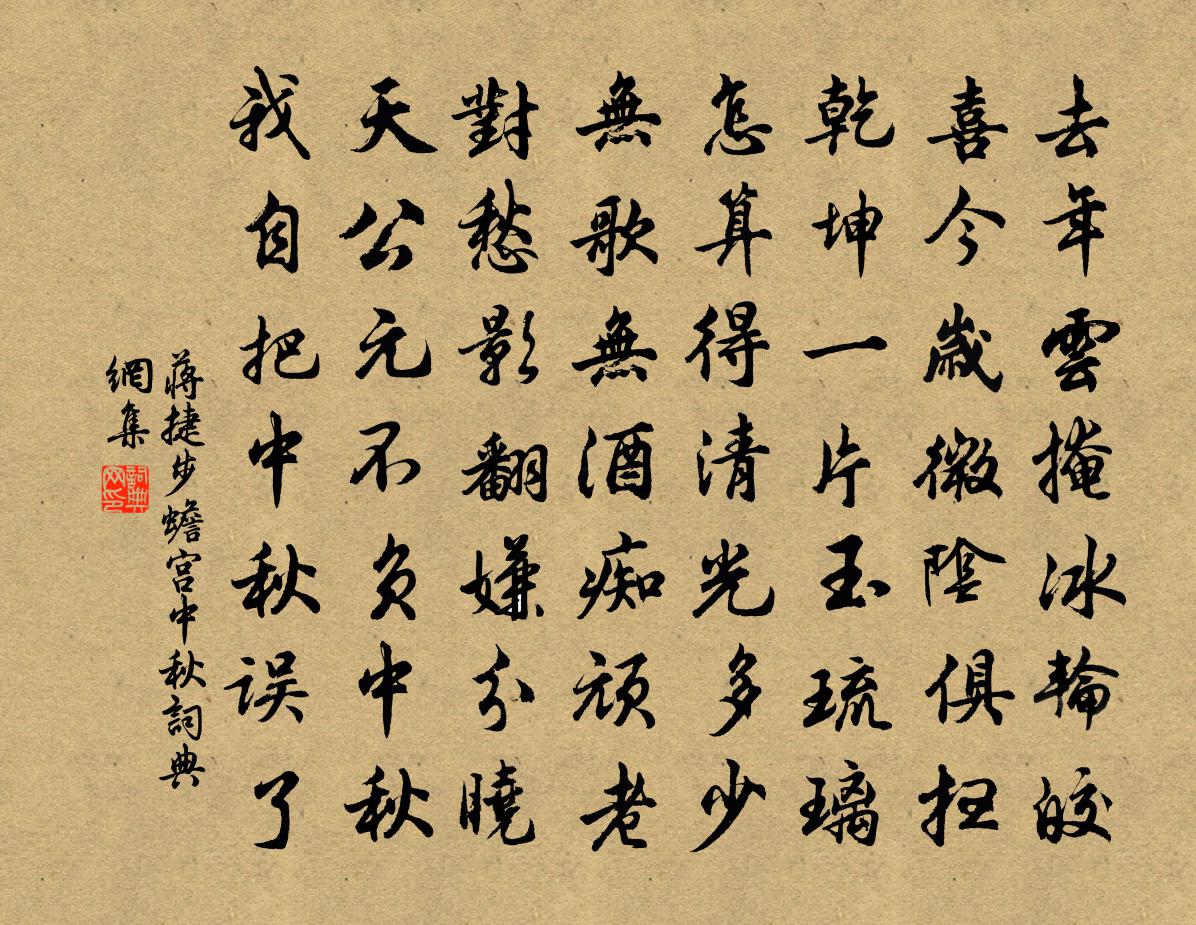 去年雲掩冰輪皎
喜今歲微陰俱掃
乾坤一片玉琉璃
怎算得清光多少
無歌無酒痴頑老
對愁影翻嫌分曉
天公元不負中秋
我自把中秋误了
蔣捷步蟾宮中秋詞典
網集
詞典
网印